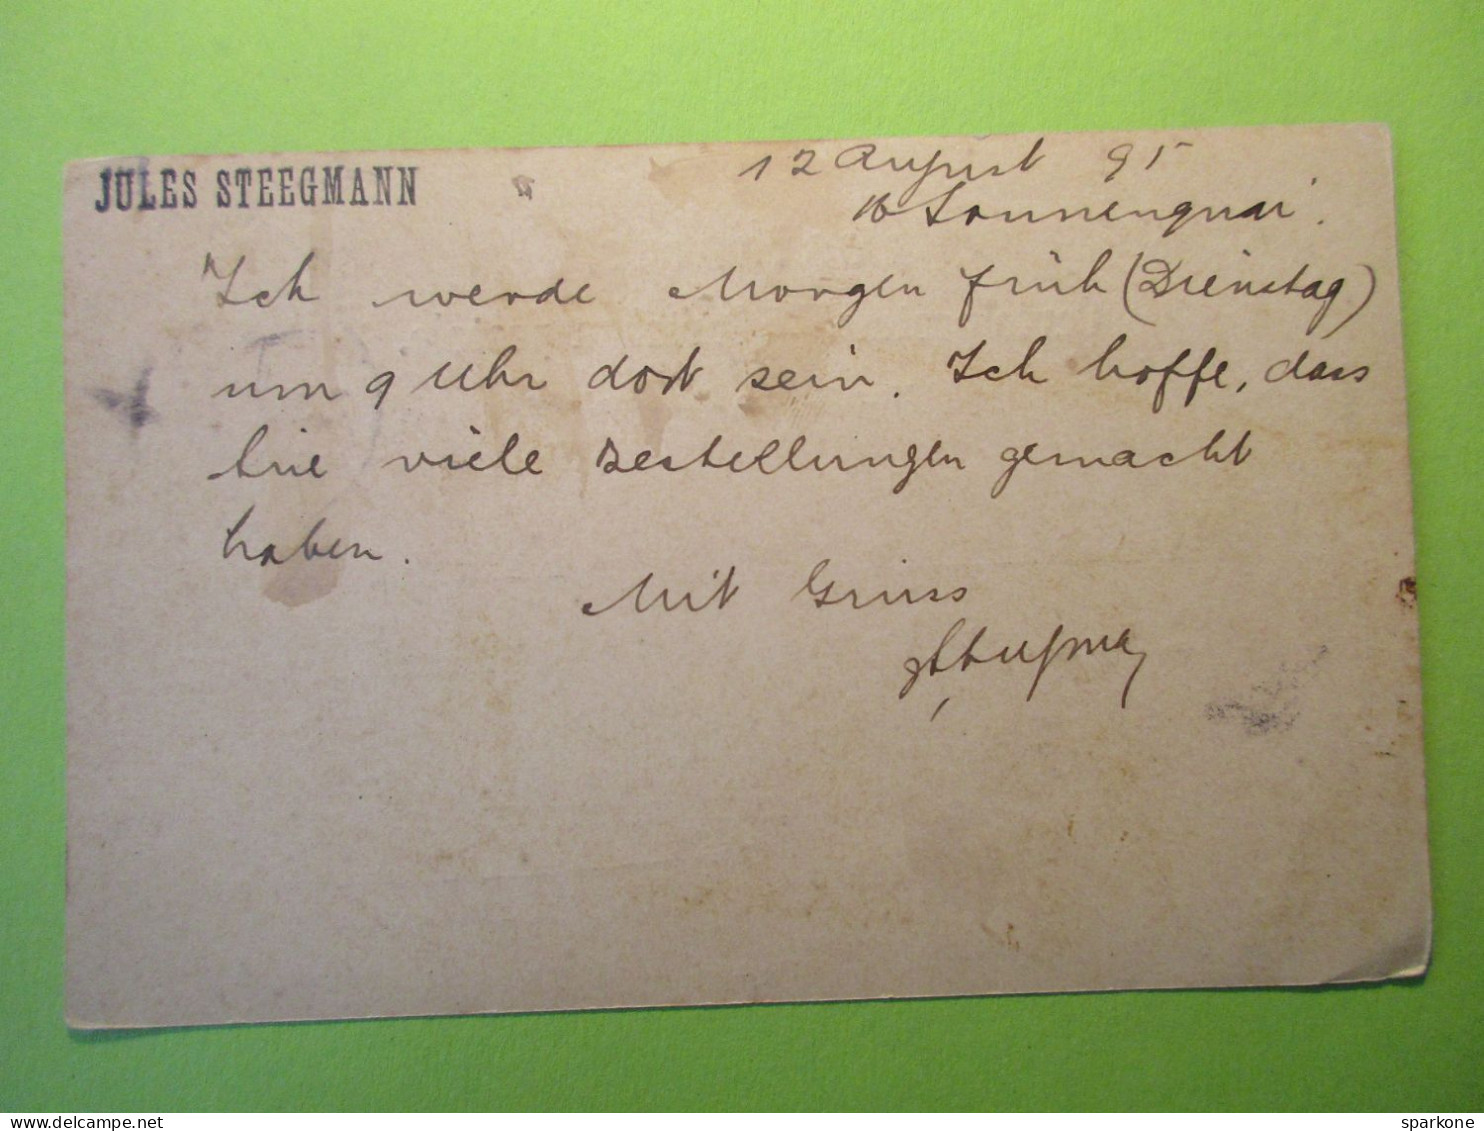 JULES STEEGMANN
12 August 95
16 Sonnenquai.
Ich werde Morgen früh (Dienstag)
um 9 Uhr dort sein. Ich hoffe, dass
Sie viele Bestellungen gemacht
haben.
Mit Gruss
delcampe.net
sparkone